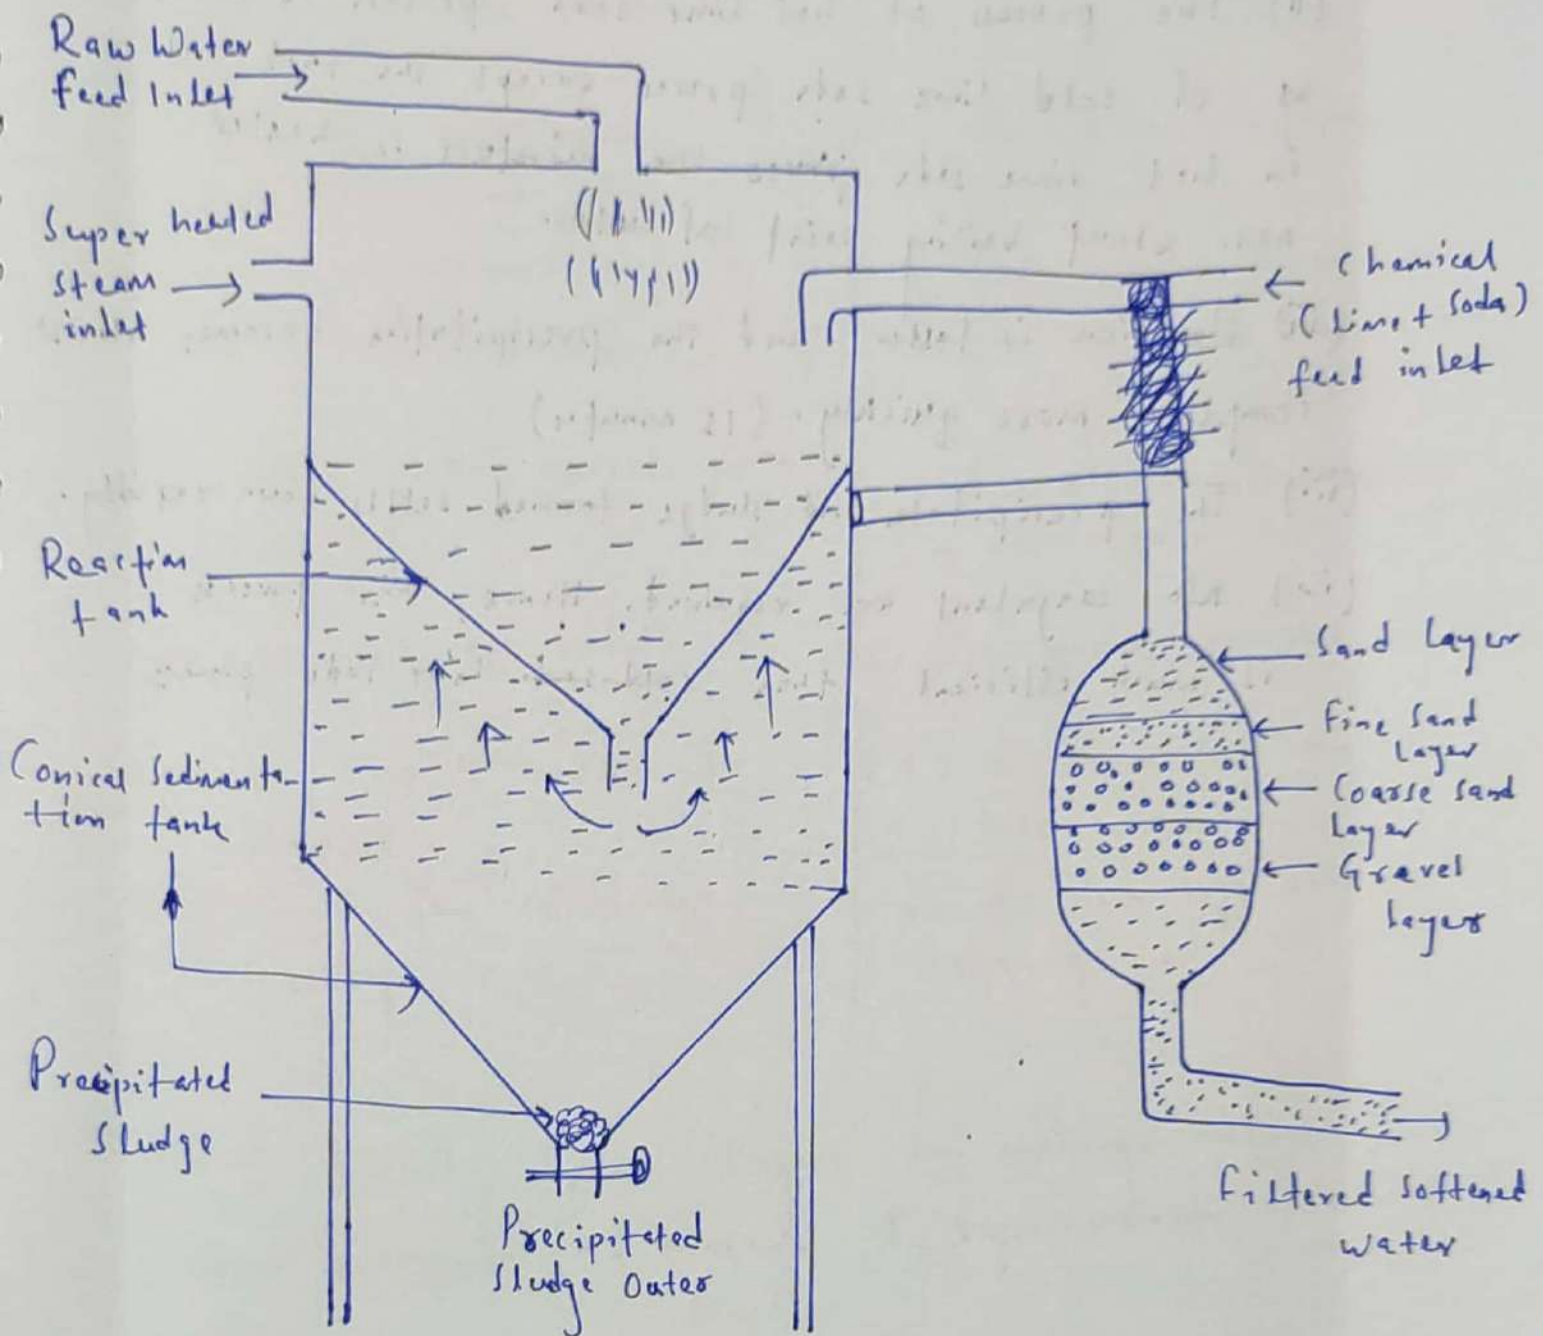 Raw Water
feed Inlet
Super heated
steam
inlet
Chemical
(Lime + Soda)
feed inlet
Reaction
tank
Sand Layer
Fine Sand
Layer
Conical Sedimenta-
tion tank
Coarse sand
Layer
Gravel
Layer
Precipitated
Sludge
Precipitated
Sludge Outer
Filtered Softened
water